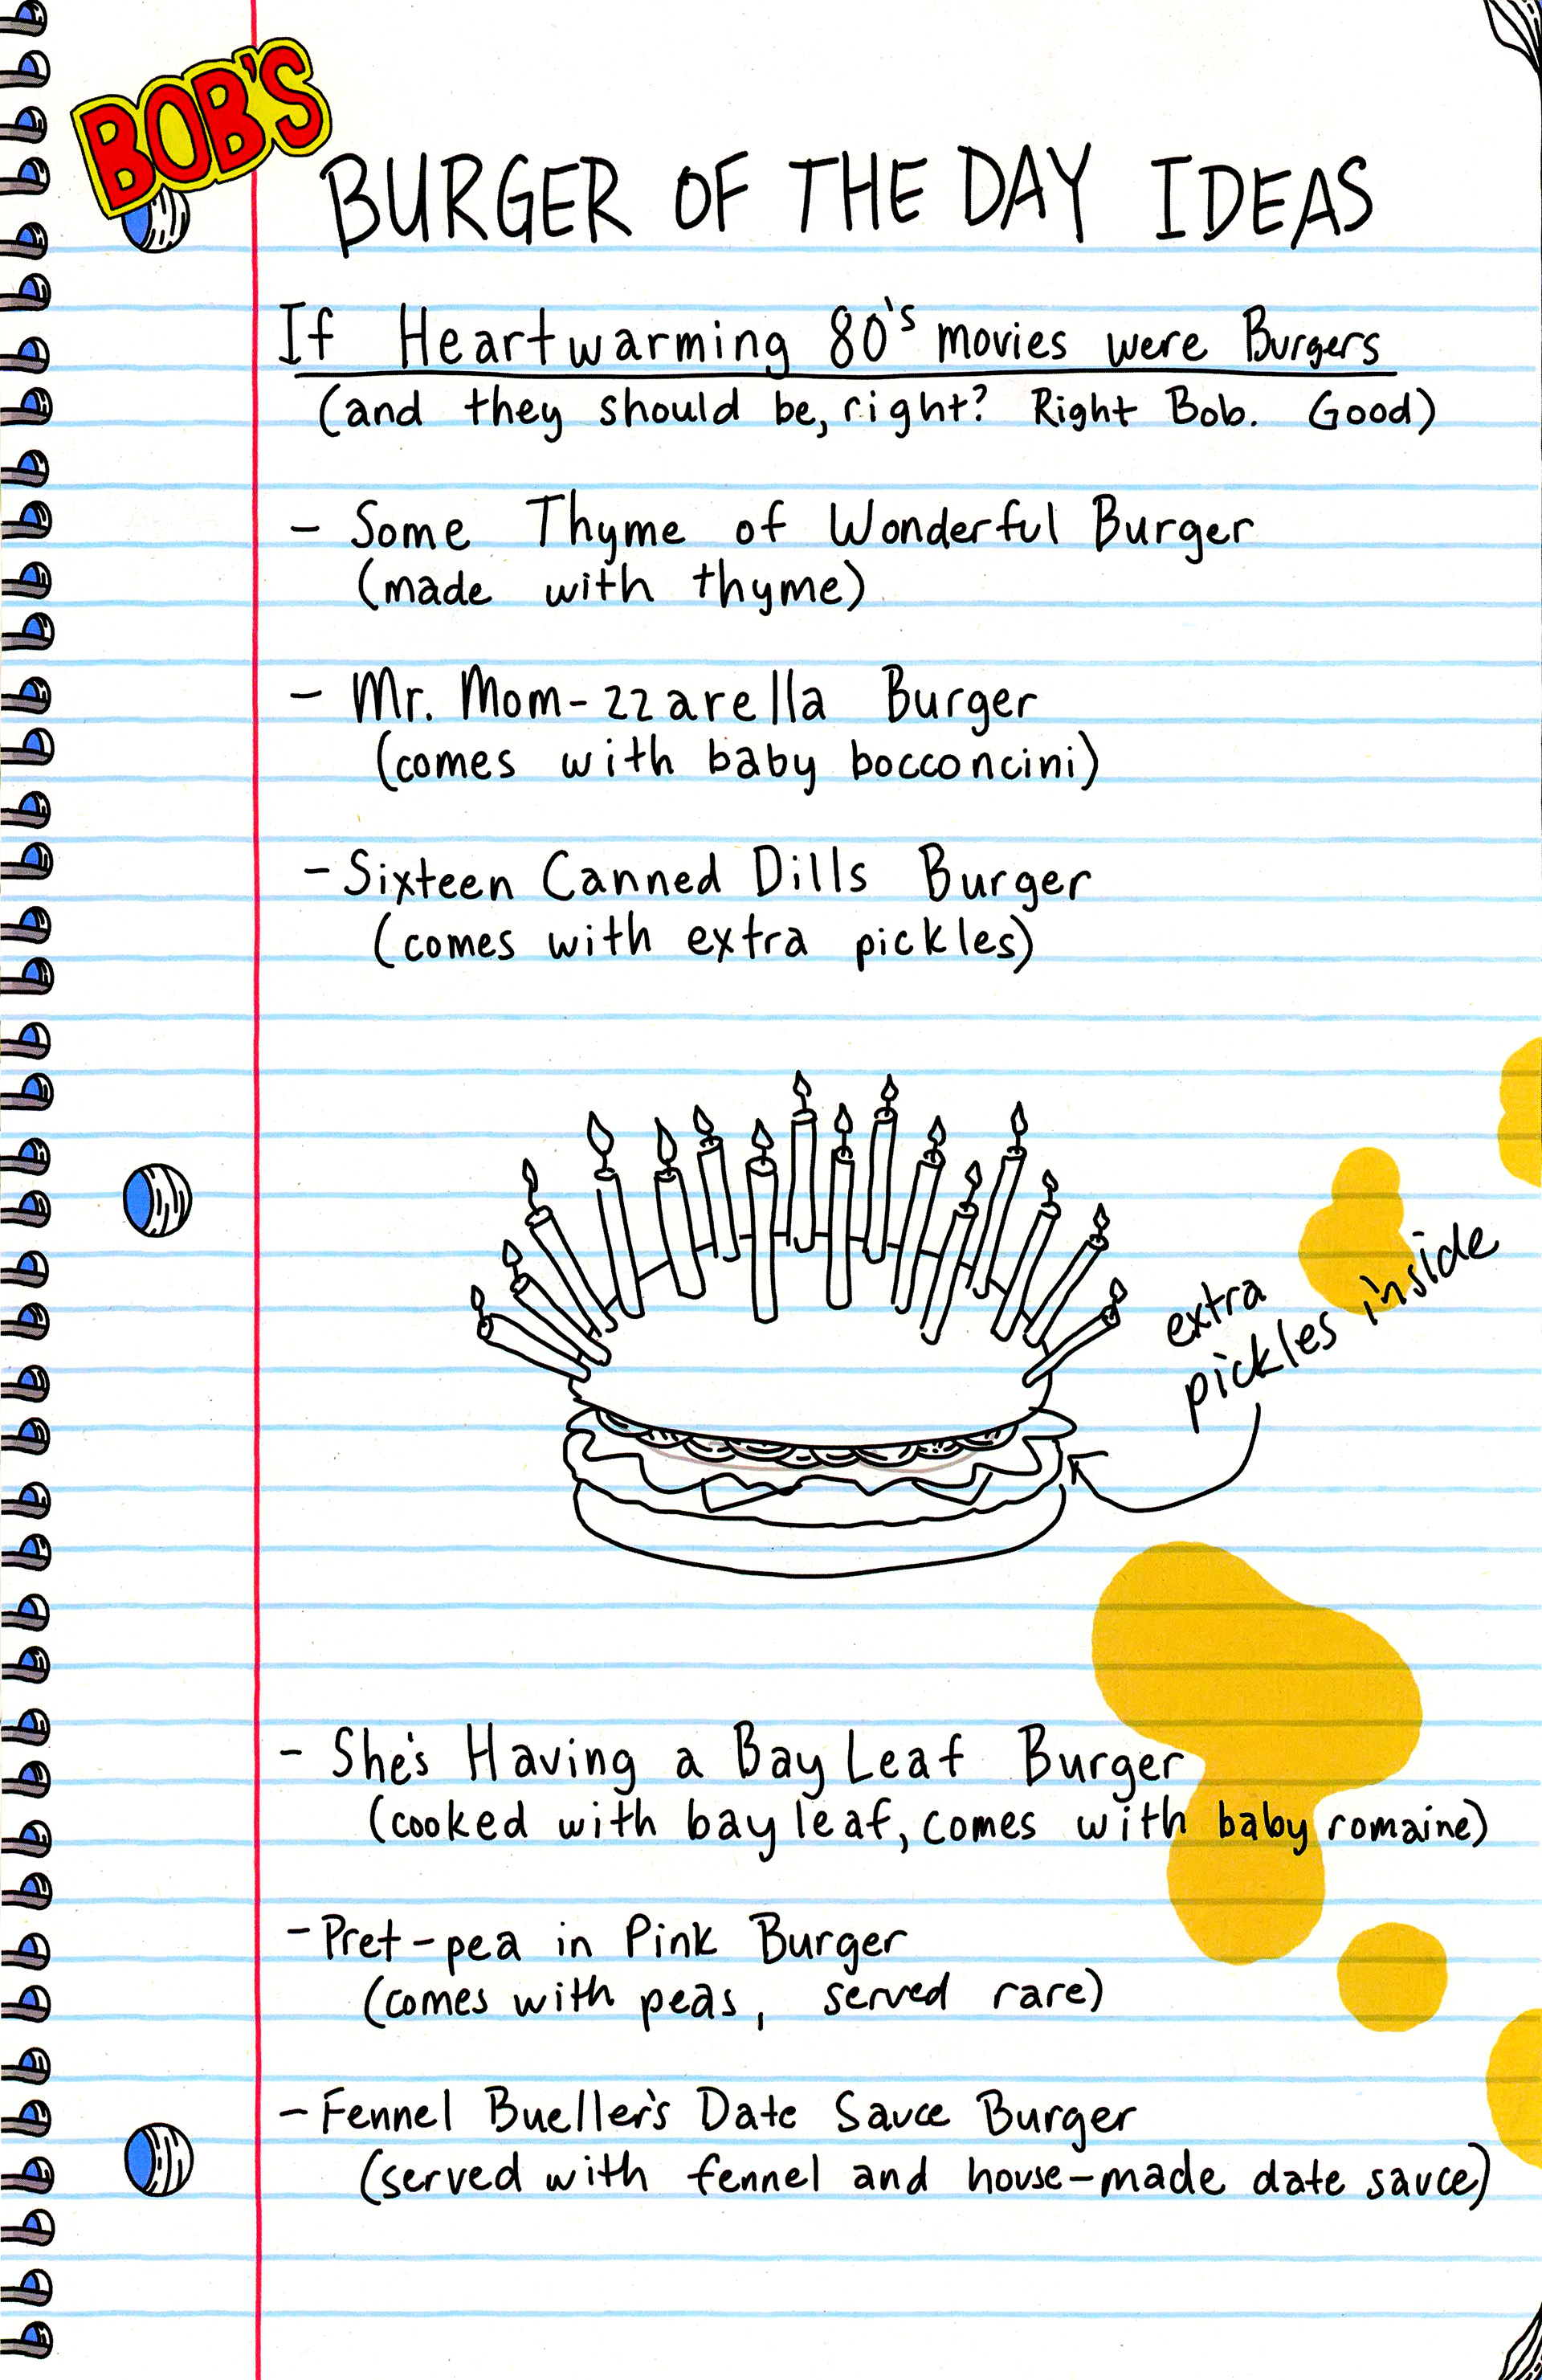 BOB'S
BURGER OF THE DAY IDEAS
If Heartwarming 80's movies were Burgers
(and they should be, right? Right Bob. Good)
- Some Thyme of Wonderful Burger
(made with thyme)
- Mr. Mom-zzarella Burger
(comes with baby bocconcini)
- Sixteen Canned Dills Burger
(comes with extra pickles)
extra
pickles inside
- She's Having a Bay Leaf Burger
(cooked with bay leaf, comes with baby romaine)
- Pret-pea in Pink Burger
(comes with peas, served rare)
- Fennel Bueller's Date Sauce Burger
(served with fennel and house-made date sauce)